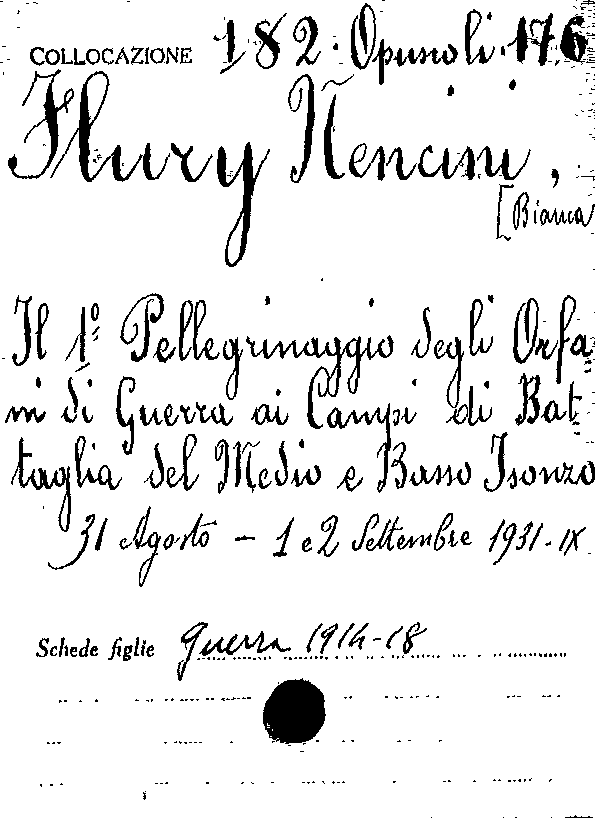 COLLOCAZIONE 182. Opuscoli. 176
Flury Nencini,
[Bianca
Il 1º Pellegrinaggio degli Orfa=
ni di Guerra ai Campi di Bat=
taglia del Medio e Basso Isonzo
31 Agosto - 1 e 2 Settembre 1931-IX
Schede figlie Guerra 1914-18